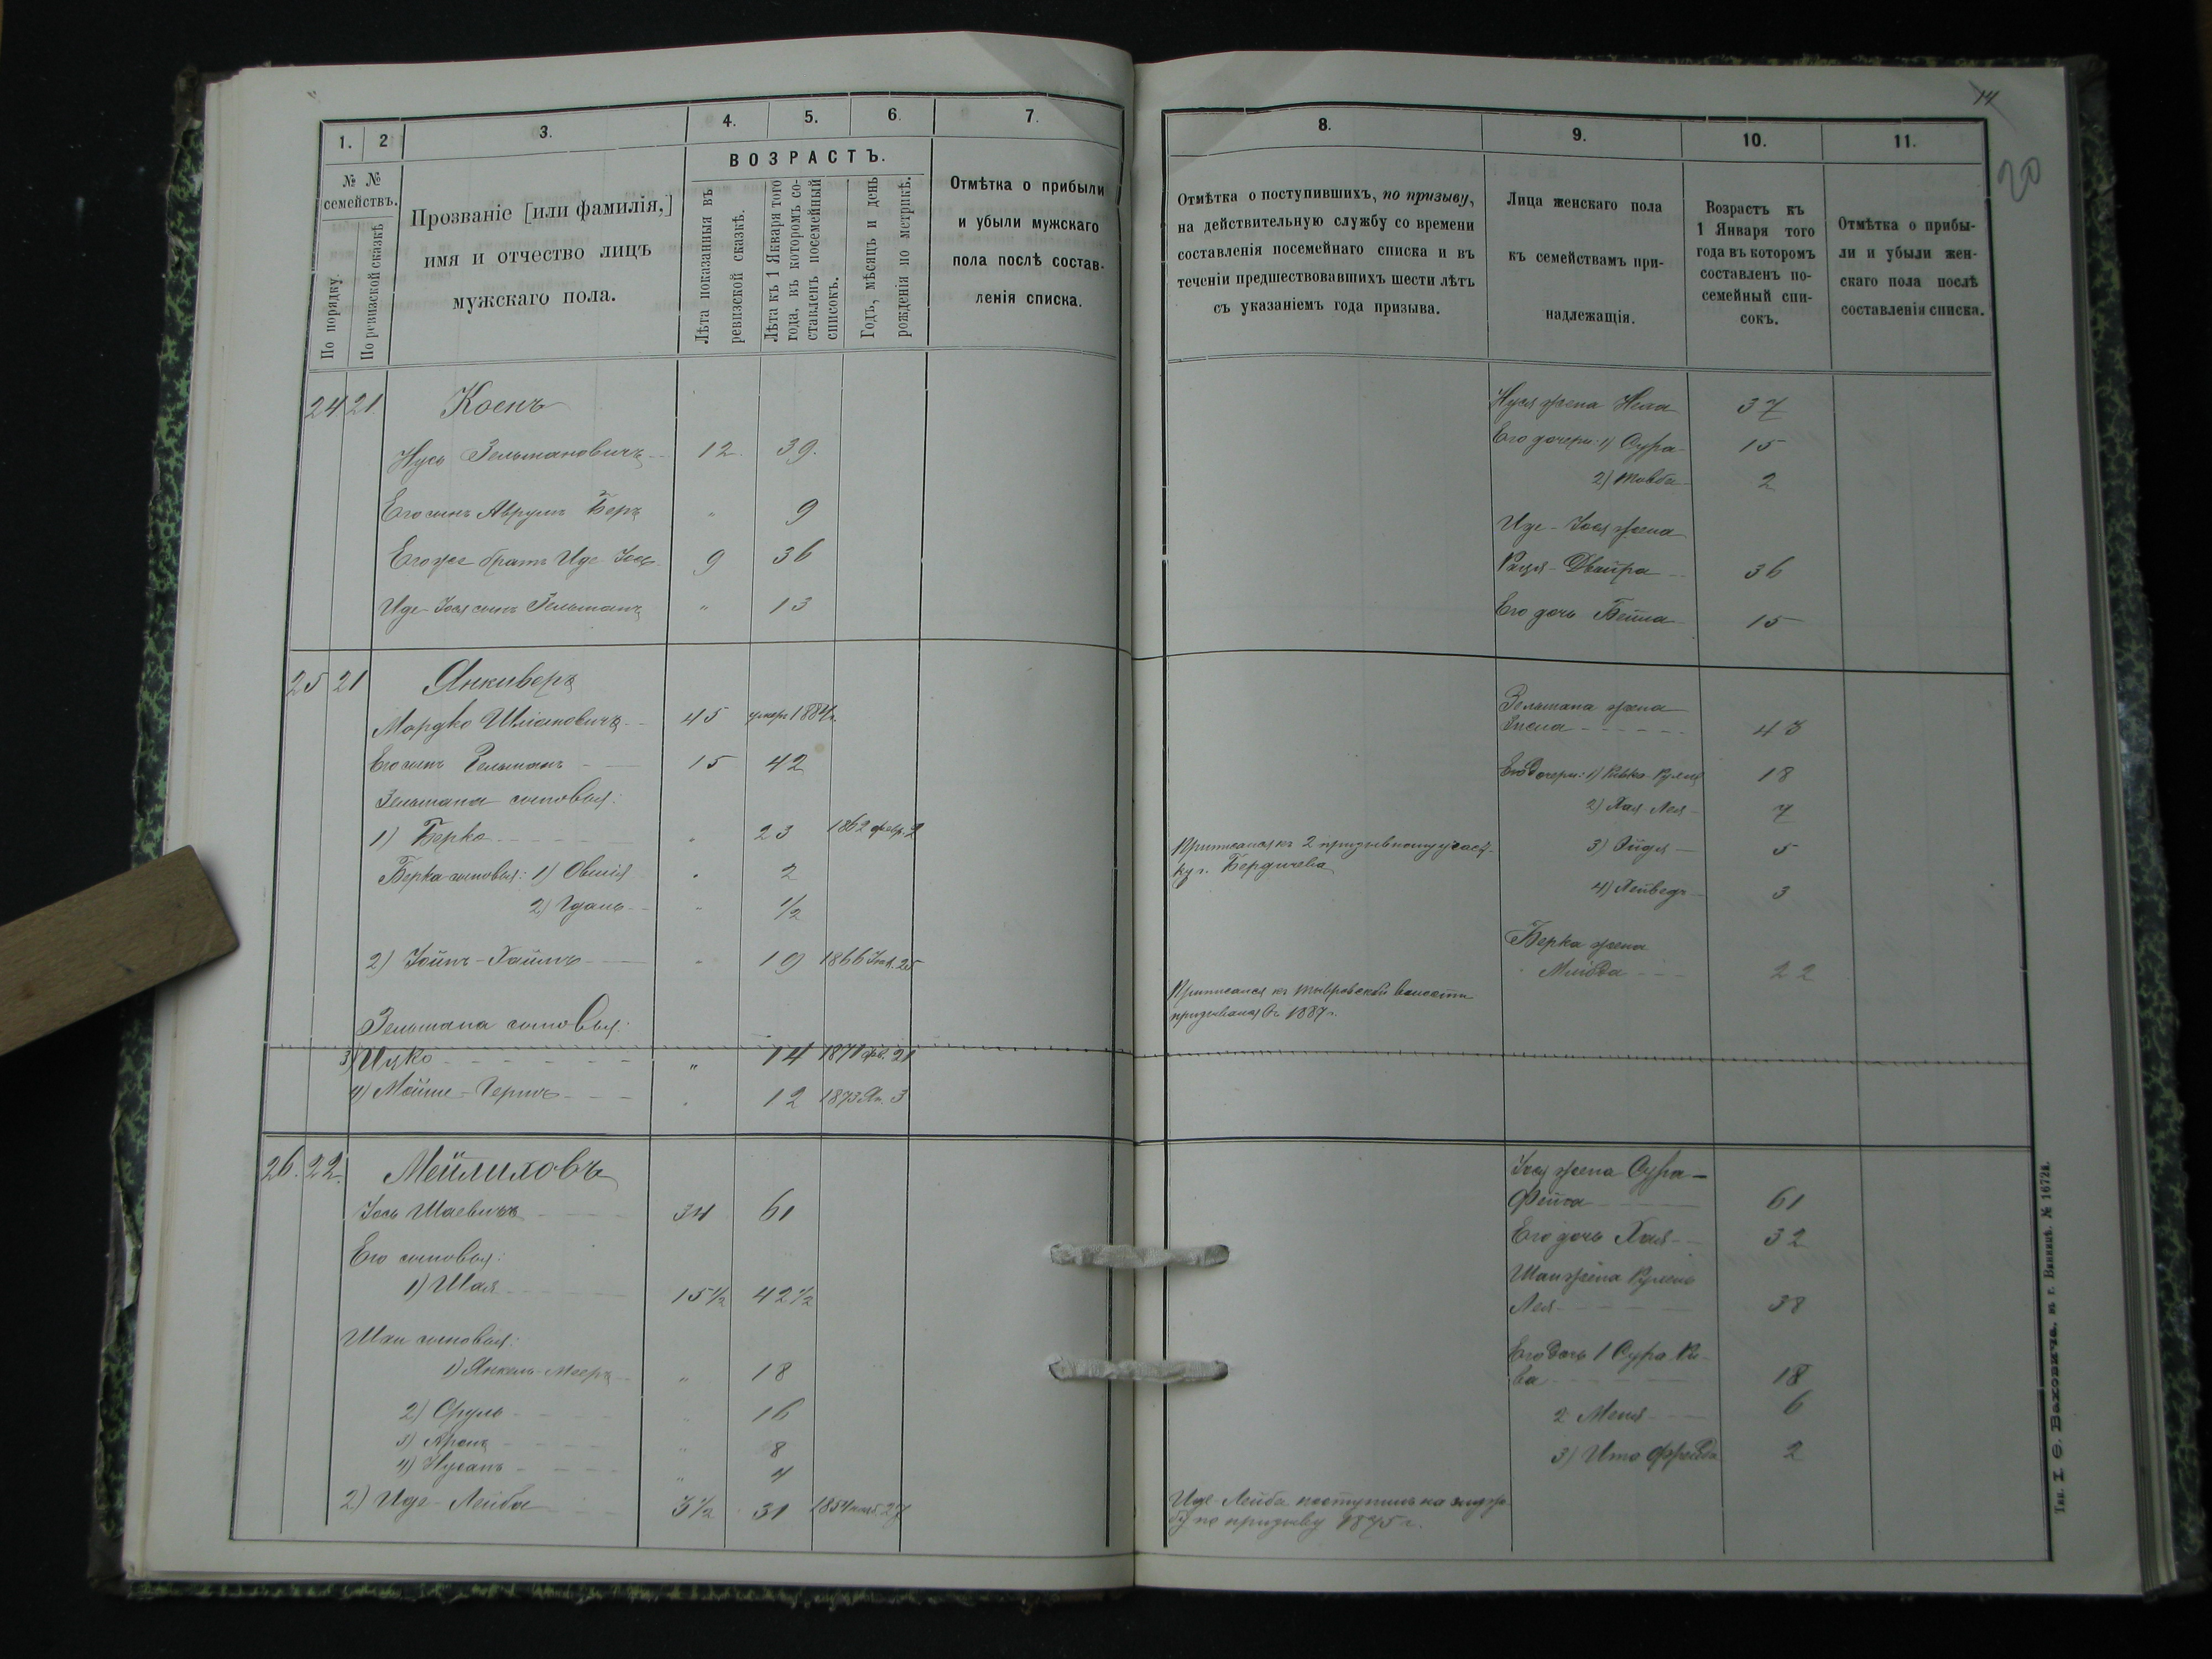 1.
2
3.
4.
5.
6.
7.
№ №
семействъ.
По порядку.
По ревизской сказкѣ
Прозваніе [или фамилія,]
имя и отчество лицъ
мужскаго пола.
ВОЗРАСТЪ.
Лѣта показанныя въ
ревизской сказкѣ.
Лѣта къ 1 Января того
года, въ которомъ со-
ставленъ посемейный
списокъ.
Годъ, мѣсяцъ и день
рожденія по метрикѣ.
Отмѣтка о прибыли
и убыли мужскаго
пола послѣ состав-
ленія списка.
24 21 Коенъ
Нусь Зельмановичъ 12. 39.
Его сынъ Аврумъ Беръ " 9
Его же братъ Иде Іось 9 36
Иде-Іося сынъ Зельманъ " 13
25 21 Янкиверъ
Мордко Шліомовичъ 45 умеръ 1884 г.
Его сынъ Зельманъ 15 42
Зельмана сыновья:
1) Берко " 23 1862 февр. 2
Берка сыновья: 1) Овшія " 2
2) Иданъ " 1/2
2) Хаимъ " 19 1866 25
Зельмана сыновья:
3) Ицко " 14 1871 фв. 21
4) Мойше-Гершъ " 12 1873 Ян. 3
26. 22. Мейлиховъ
Іось Шаевичъ 34 61
Его сыновья:
1) Шая 15 1/2 42 1/2
Шаи сыновья:
1) Янкель-Мееръ " 18
2) Сруль " 16
3) Аронъ " 8
4) Нусанъ " 4
2) Иде-Лейба 3 1/2 31 1854 27
14
20
8.
9.
10.
11.
Отмѣтка о поступившихъ, по призыву,
на дѣйствительную службу со времени
составленія посемейнаго списка и въ
теченіи предшествовавшихъ шести лѣтъ
съ указаніемъ года призыва.
Лица женскаго пола
къ семействамъ при-
надлежащія.
Возрастъ къ
1 Января того
года въ которомъ
составленъ по-
семейный спи-
сокъ.
Отмѣтка о прибы-
ли и убыли жен-
скаго пола послѣ
составленія списка.
Нуся жена 37
Его дочери: 1) Сура 15
2) Товба 2
Иде-Іося жена
Двойра 36
Его дочь Бейла 15
Зельмана жена
43
Его дочери: 1) Ривка 18
2) Хая Лея 7
Приписался къ 2 призывному участ-
ку г. Бердичева
3) Эйдя 5
4) 3
Берка жена
22
Приписался къ Тывровской волости
призывался въ 1887 г.
Іося жена Сура-
Фейга 61
Его дочь Хая 32
Шаи жена
Лея 38
Его дочь 1 Сура Ри-
ва 18
2 Меня 6
3) Ита Фрейда 2
Иде Лейба поступилъ на служ-
бу по призыву 1875 г.
Тип. І. С. Баховича. въ г. Винницѣ. № 1672в.